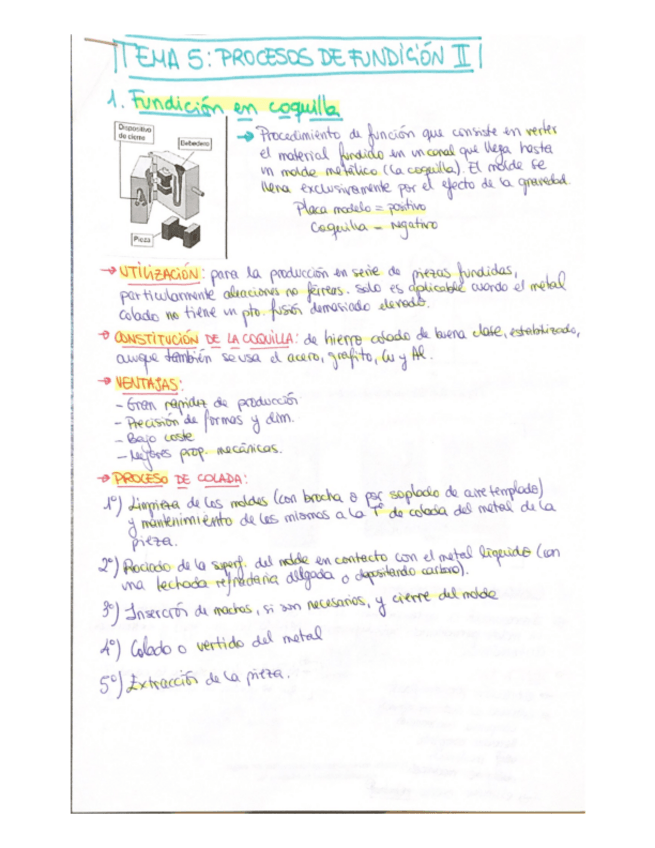 TEMA 5: PROCESOS DE FUNDICIÓN II
1. Fundición en coquilla
Dispositivo de cierre
Bebedero
Pieza
→ Procedimiento de función que consiste en verter
el material fundido en un canal que llega hasta
un molde metálico (La coquilla). El molde se
llena exclusivamente por el efecto de la gravedad.
Placa modelo = positivo
Coquilla = Negativo
→ UTILIZACIÓN: para la producción en serie de piezas fundidas,
particularmente aleaciones no férreas. Solo es aplicable cuando el metal
colado no tiene un pto. fusión demasiado elevado.
→ CONSTITUCIÓN DE LA COQUILLA: de hierro colado de buena clase, estabilizado,
aunque también se usa el acero, grafito, Cu y Al.
→ VENTAJAS:
- Gran rapidez de producción
- Precisión de formas y dim.
- Bajo coste
- Mejores prop. mecánicas.
→ PROCESO DE COLADA:
1º) Limpieza de los moldes (con brocha o por soplado de aire templado)
y mantenimiento de los mismos a la Tª de colada del metal de la
pieza.
2º) Rociado de la superf. del molde en contacto con el metal líquido (con
una lechada refractaria delgada o depositando carbono).
3º) Inserción de machos, si son necesarios, y cierre del molde
4º) Colado o vertido del metal
5º) Extracción de la pieza.